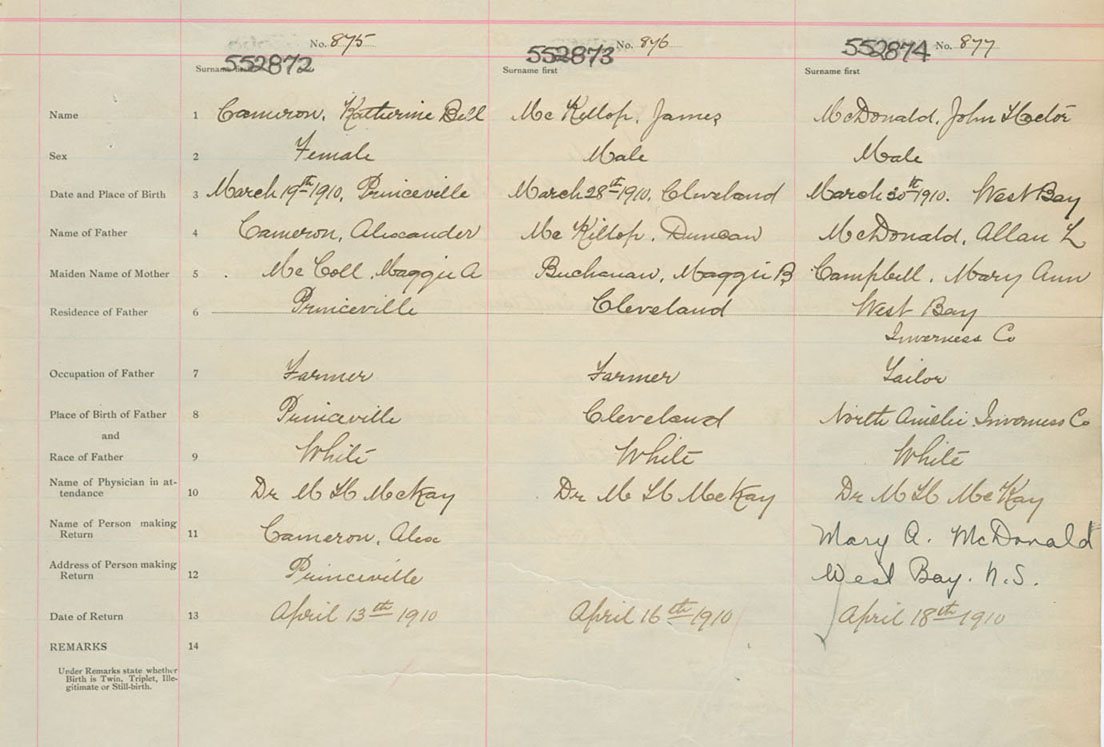 No. 875 No. 876 No. 877
552872 552873 552874
Surname first Surname first Surname first
Name 1 Cameron, Katherine Bell Mc Killop, James McDonald, John Hector
Sex 2 Female Male Male
Date and Place of Birth 3 March 19th 1910, Princeville March 28th 1910, Cleveland March 30th 1910. West Bay
Name of Father 4 Cameron, Alexander Mc Killop, Duncan McDonald, Allan L
Maiden Name of Mother 5 Mc Coll Maggie A Buchanan, Maggie B Campbell, Mary Ann
Residence of Father 6 Princeville Cleveland West Bay
Inverness Co
Occupation of Father 7 Farmer Farmer Tailor
Place of Birth of Father 8 Princeville Cleveland North Inverness Co
and
Race of Father 9 White White White
Name of Physician in at-
tendance 10 Dr McKay Dr McKay Dr McKay
Name of Person making
Return 11 Cameron, Alex Mary A. McDonald
Address of Person making
Return 12 Princeville West Bay. N.S.
Date of Return 13 April 13th 1910 April 16th 1910 April 18th 1910
REMARKS 14
Under Remarks state whether
Birth is Twin, Triplet, Ille-
gitimate or Still-birth.